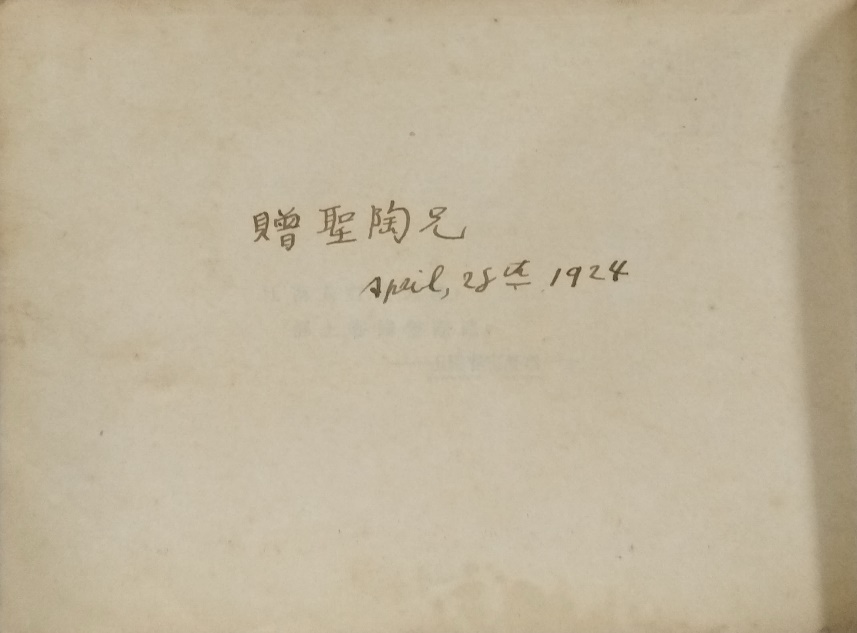 贈聖陶兄
April, 28th 1924